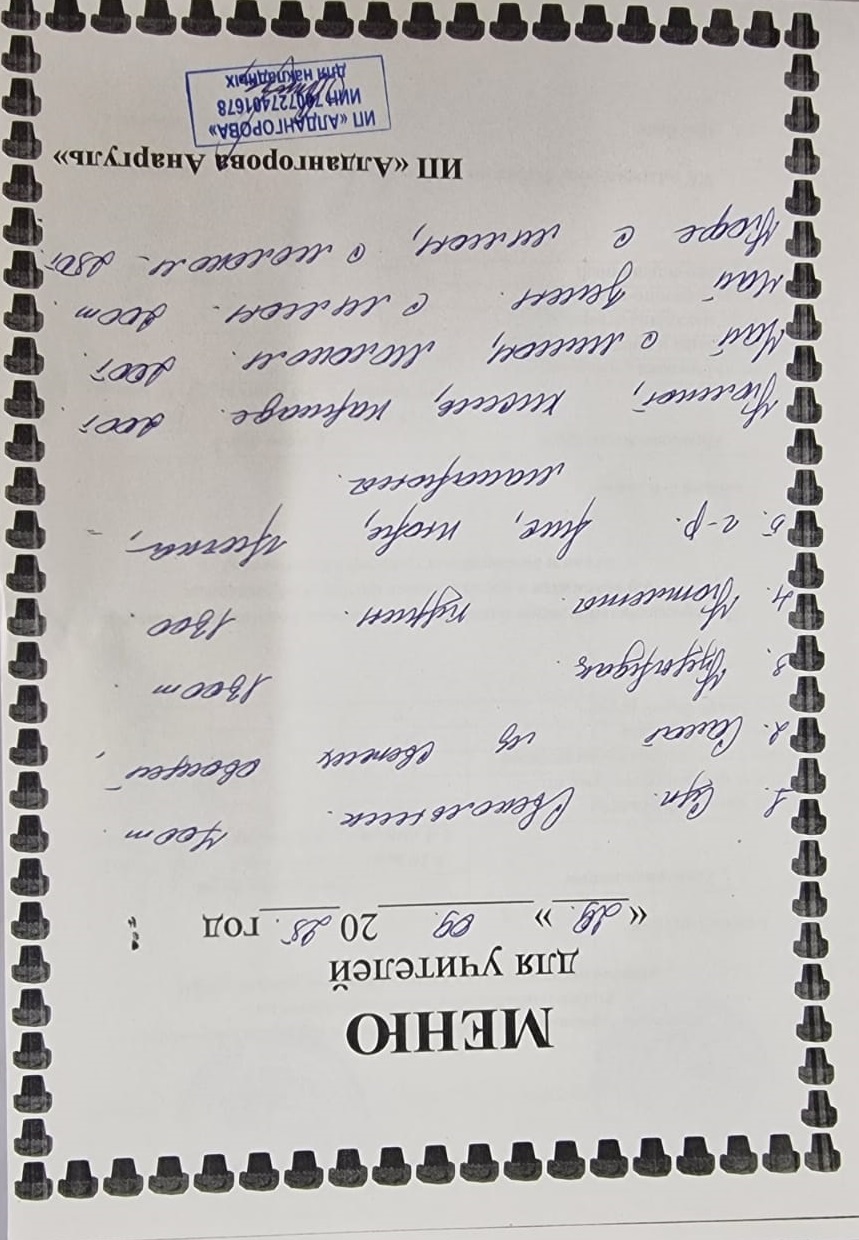 МЕНЮ
для учителей
« 29. » 09. 20 25. год
1. Суп. Свекольник. 400т.
2. Салат из свежих овощей,
3. 1300т.
4. Котлета. курин. 1300.
5. г-р. рис, пюре, гречка,
макароны.
Компот, кисель, каркаде. 200т
Чай с лимон, молоком. 200т.
Чай зелен. с лимон. 200т.
Кофе с лимон, с молоком. 250т.
ИП «Алдангорова Анаргуль»
ИП «АЛДАНГОРОВА»
ИИН 740727401678
для накладных